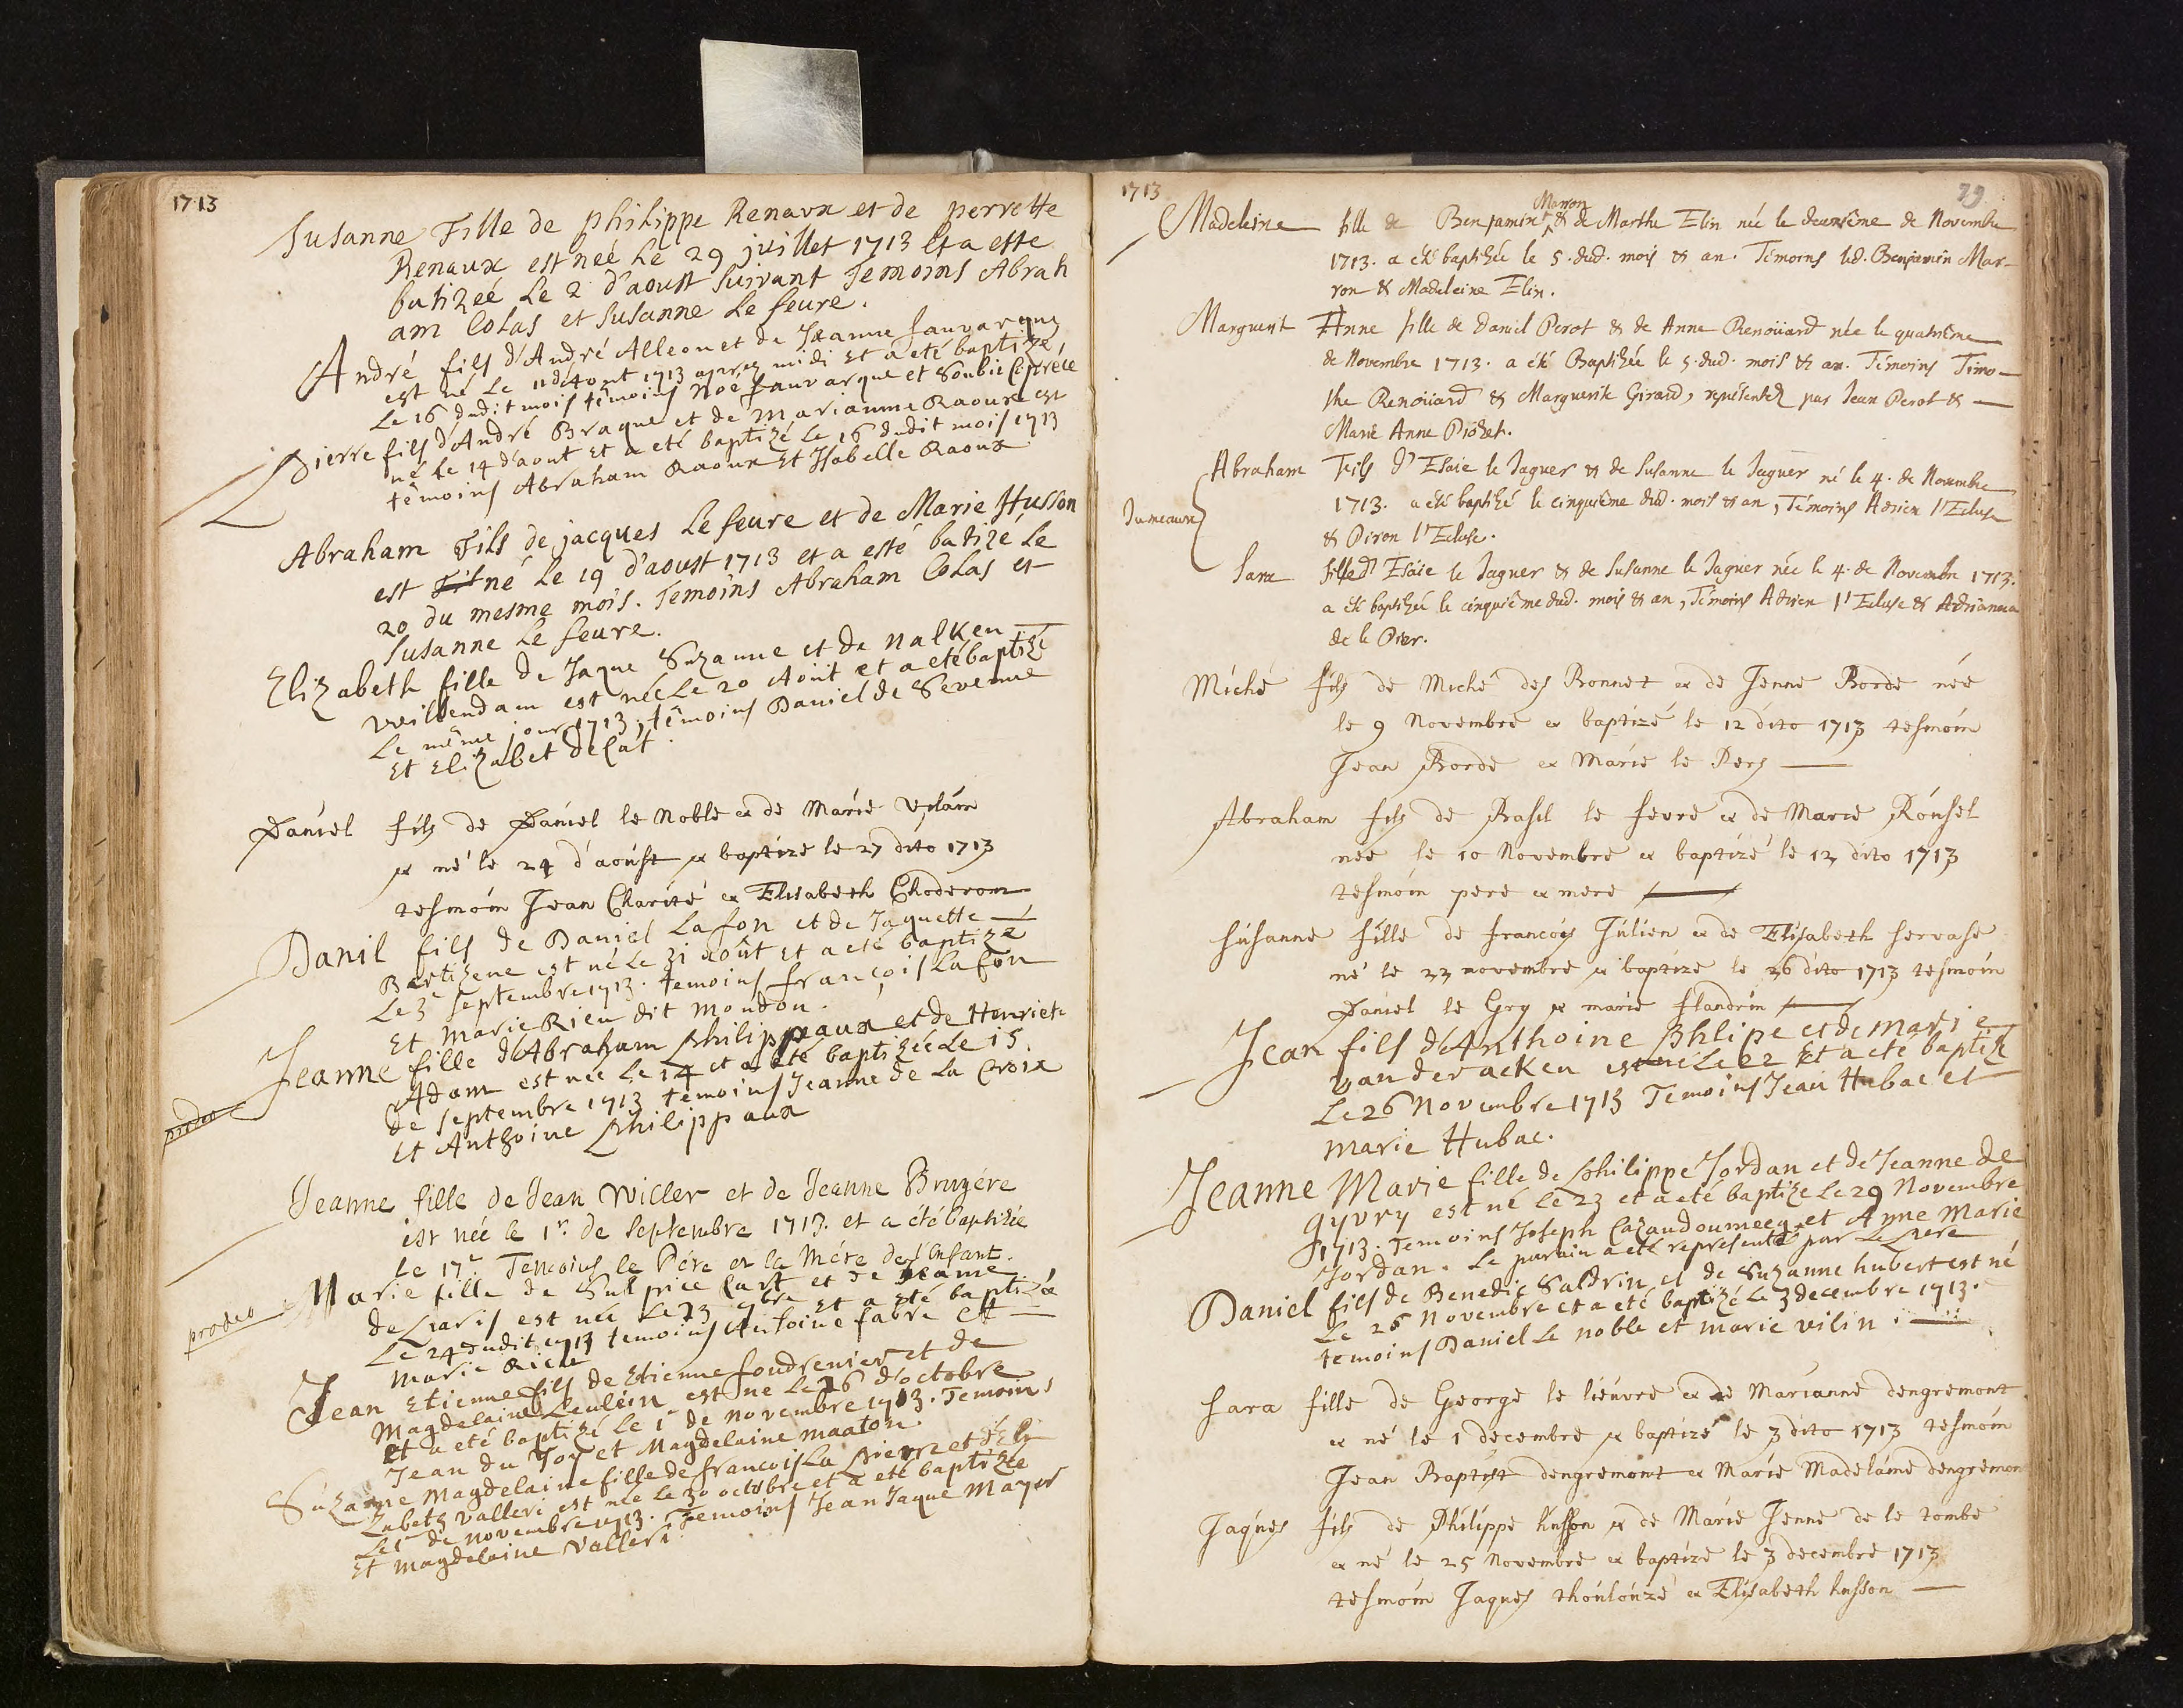 1713
Susanne Fille de philippe Renaux et de perrette
Renaux est neé Le 29 juillet 1713 Et a esté
batizeé Le 2 d'aoust suivant Temoins Abrah
am Colas et Susanne Le feure.
André fils d'André Alleon et de Jeanne Sauvarque
est né Le 11 d'Aout 1713 aprez midi Et a eté baptizé,
Le 16 dudit mois têmoins Noé Sauvarque et
Pierre fils d'André Braque et de Marianne Raoux est
né Le 14 d'aout Et a eté baptizé Le 16 dudit mois 1713
têmoins Abraham Raoux Et Isabelle Raoux
Abraham Fils de jacques Le feure et de Marie Husson
est né Le 19 d'aoust 1713 et a esté batizé Le
20 du mesme mois. Temoins Abraham Colas et
Susanne Le feure.
Elizabeth fille de Jaque Suzanne et de Nalken
Willendam est née Le 20 Aoüt et a eté baptizé
Le même jour 1713, têmoins Daniel de Sevenne
Et Elizabet
Daniel fils de Daniel le Noble & de Marie
& né le 24 d'aoust & baptize le 27 dito 1713
tesmoin Jean Charité & Elisabeth Choderom
Danil fils de Daniel Lafon et de Jaquette
Bertizene est né Le 31 août Et a eté baptizé
Le 3e Septembre 1713. temoins françois Lafon
Et Marie Rieu dit Moudon.
Jeanne fille d'Abraham Philippeaux et de Henriete
Adam est née Le 14 et a été baptizée Le 15
de septembre 1713 temoins Jeanne de La Croix
Et Anthoine Philippaux
prodeo
Jeanne fille de Jean Willer et de Jeanne Bruyére
est née le 1r. de Septembre 1713. et a été baptizée
le 17e Temoins le Pére et la Mére de l'Enfant.
prodeo
Marie fille de Sulpice Cart et de Jeanne
de Paris est née Le 23 9bre Et a eté baptizée
Le 24 dudit 1713 temoins Antoine fabre et
Marie
Jean Etienne fils de Etienne foudrenier et de
Magdelaine est né Le 26 d'octobre
et a eté baptizé Le 1r de Novembre 1713. Temoins
Jean du Toy et Magdelaine maaton.
Suzanne Magdelaine fille de francois La Pierre et d'Eli
zabeth Valleri est née Le 30 octobre et a eté baptizée
Le 1r de Novembre 1713. Temoins Jean Jaque Mayer
Et Magdelaine Valleri.
1713
29
Madeleine fille de Benjamin Marron & de Marthe Elin née le deuxième de Novembre
1713. a été baptizée le 5. dud. mois & an. Témoins led. Benjamin Mar-
ron & Madeleine Elin.
Marguerit Anne fille de Daniel Perot & de Anne Renoüard née le quatrième
de Novembre 1713. a été Baptizée le 5. dud. mois & an. Témoins Timo-
the Renoüard & Marguerite Girard, reprétentéz par Jean Perot &
Marie Anne
Jumeaux
Abraham Fils D'Esaie le Jaguer & de Susanne le Jaguer né le 4. de Novembre
1713. a été baptizé le cinquième dud. mois & an, Témoins Adrien l'Ecluse
& Piron l'Ecluse.
Sara fille D'Esaïe le Jaguer & de Susanne le Jaguer née le 4. de Novembre 1713.
a été baptizée le cinquième dud. mois & an, Témoins Adrien l'Ecluse & Adrianna
de le
Miché fils de Miché des Bonnet & de Jenne Borde née
le 9 Novembre & baptizé le 12 dito 1713 tesmoin
Jean Borde & Marie le Pers
Abraham fils de Basil le fevre & de Marie Rousel
née le 10 Novembre & baptizé le 12 dito 1713
tesmoin pere & mere
Susanne fille de francois Julien & de Elisabeth servase
né le 22 novembre & baptize le 26 dito 1713 tesmoin
Daniel le Gry & marie flandrin
Jean fils d'Anthoine Phlipe et de marie
vanderacken est né Le 22 Et a eté baptizé
Le 26 Novembre 1713 Temoins Jean Hubac et
Marie Hubac.
Jeanne Marie fille de Philippe Jordan et de Jeanne de
Gyvry est né Le 23 et a eté baptizé Le 29 Novembre
1713. Temoins Joseph Cazaudoumecq et Anne Marie
Jordan. Le parain a eté representé par Le Pere
Daniel fils de Benedic Saldrin et de Suzanne hubert est né
Le 26 Novembre et a eté baptizé Le 3 decembre 1713.
temoins Daniel Le noble et marie vilin.
Sara fille de George le lieuvre & de Marianne dengremont
& né le 1 decembre & baptizé le 3 dito 1713 tesmoin
Jean Baptist dengremont & Marie Madelaine dengremon
Jaques fils de Philippe husson & de Marie Jenne de le tombe
& né le 25 Novembre & baptize le 3 decembre 1713
tesmoin Jaques thoulouze & Elisabeth husson